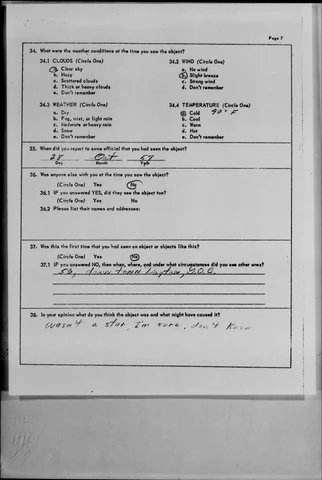 Page 7
34. What were the weather conditions at the time you saw the object?
34.1 CLOUDS (Circle One)
a. Clear sky
b. Hazy
c. Scattered clouds
d. Thick or heavy clouds
e. Don't remember
34.2 WIND (Circle One)
a. No wind
b. Slight breeze
c. Strong wind
d. Don't remember
34.3 WEATHER (Circle One)
a. Dry
b. Fog, mist, or light rain
c. Moderate or heavy rain
d. Snow
e. Don't remember
34.4 TEMPERATURE (Circle One)
a. Cold
b. Cool
c. Warm
d. Hot
e. Don't remember
35. When did you report to some official that you had seen the object?
28 Oct 57
Day Month Year
36. Was anyone else with you at the time you saw the object?
(Circle One) Yes No
36.1 IF you answered YES, did they see the object too?
(Circle One) Yes No
36.2 Please list their names and addresses:
37. Was this the first time that you had seen an object or objects like this?
(Circle One) Yes No
37.1 IF you answered NO, then when, where, and under what circumstances did you see other ones?
56, down town
38. In your opinion what do you think the object was and what might have caused it?
Wasn't a star, I'm sure, don't know